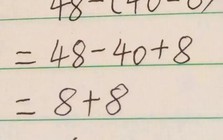 48-(40-8)
= 48-40+8
= 8+8